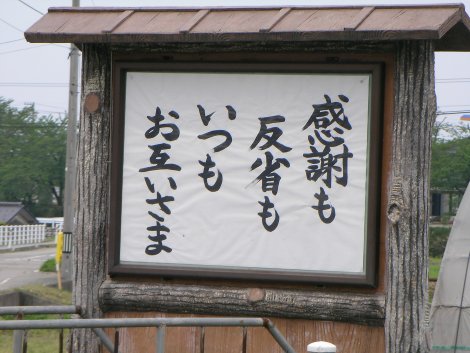 感謝も
反省も
いつも
お互いさま